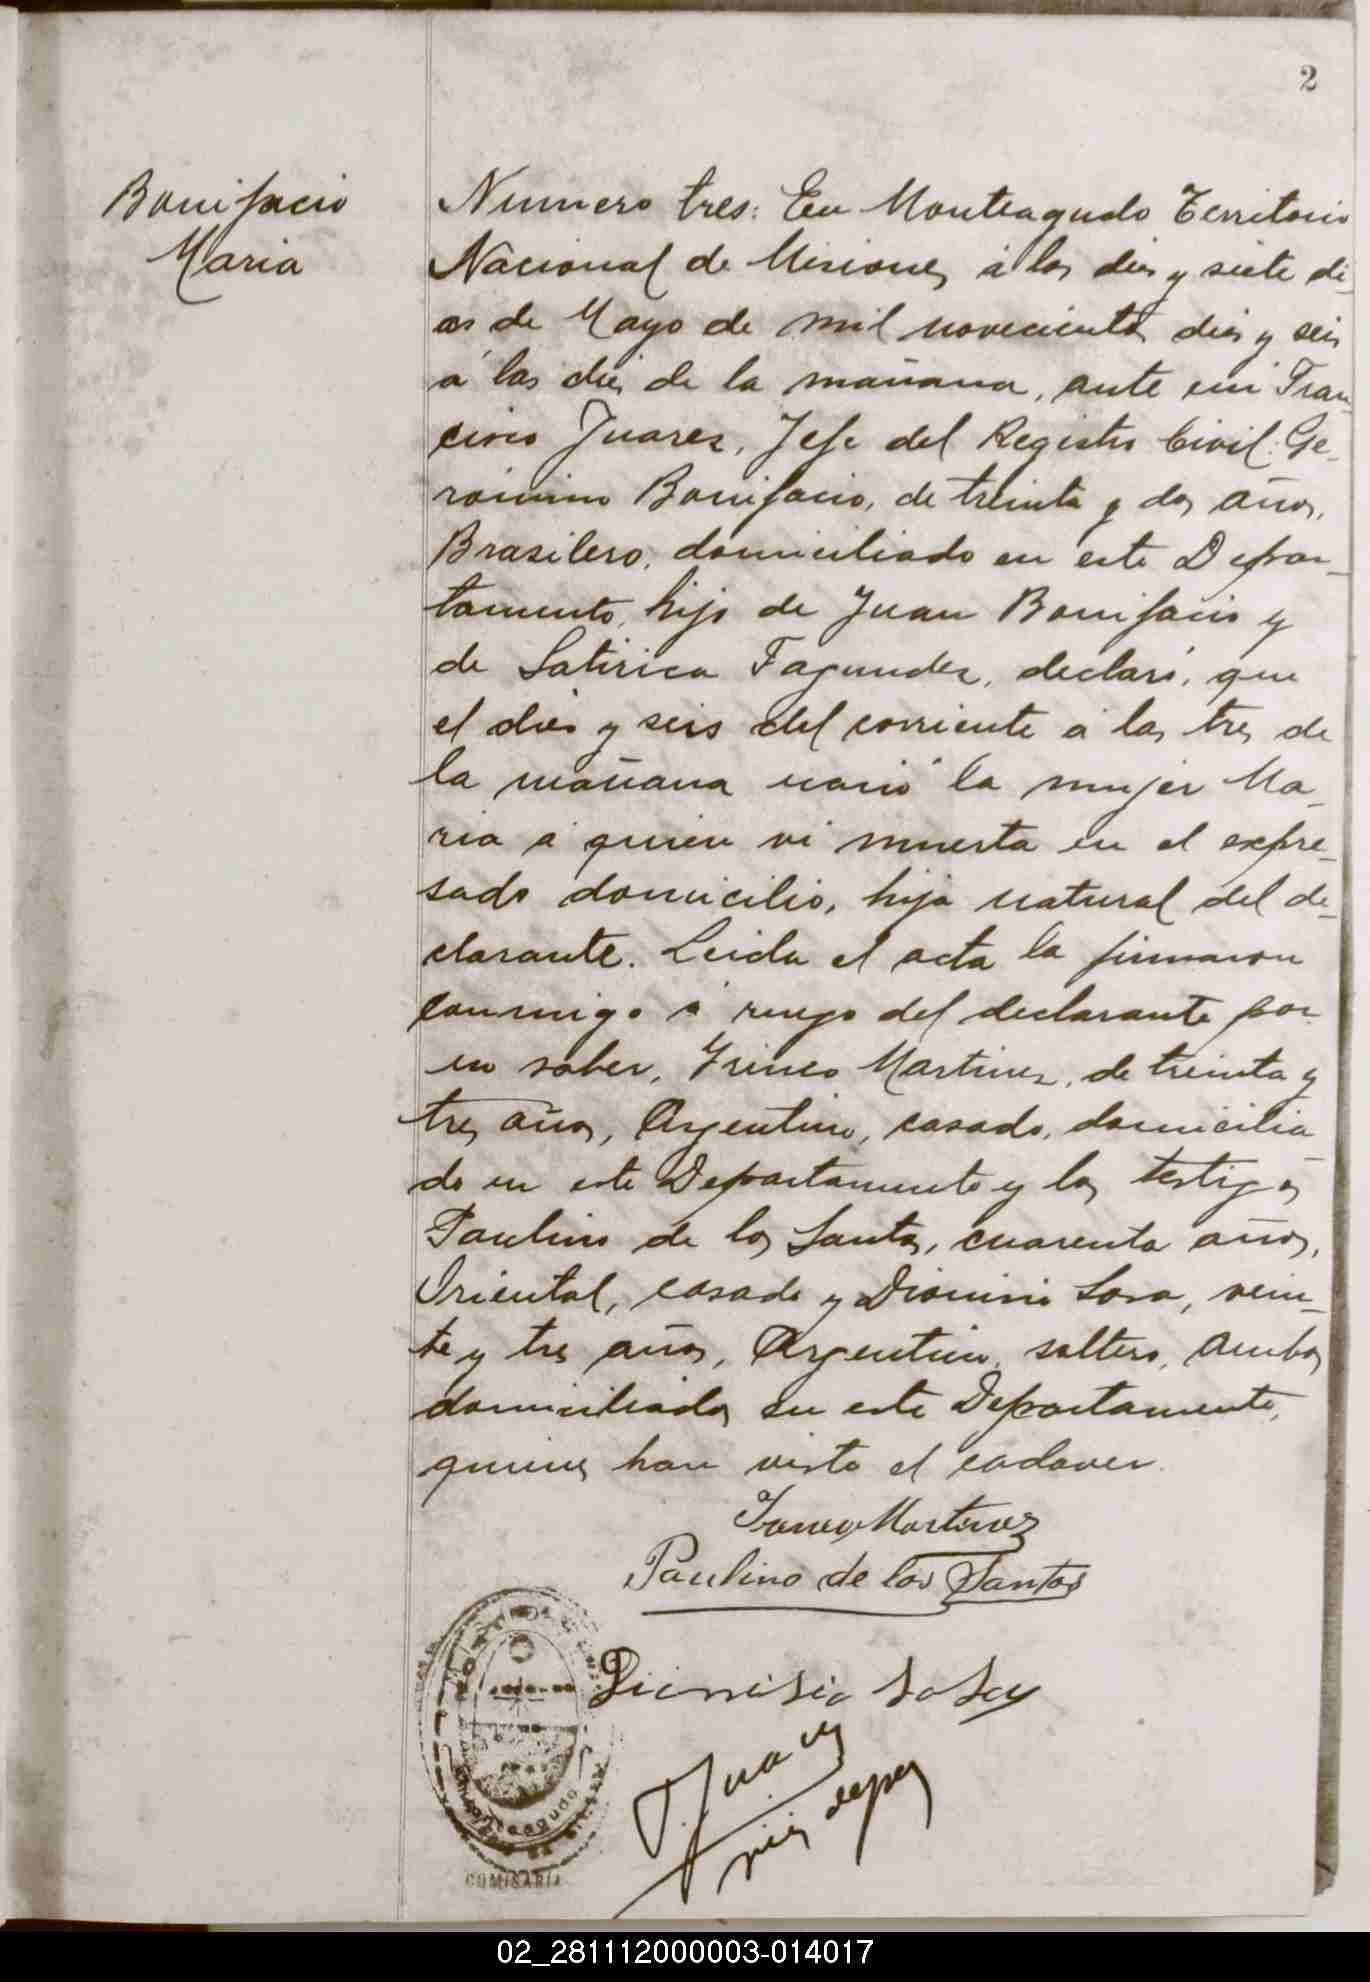 2
Bonifacio
Maria
Numero tres: En Monteagudo Territorio
Nacional de Misiones á los dies y siete di-
as de Mayo de mil novecientos dies y seis
á las dies de la mañana, ante mi Fran-
cisco Juarez, Jefe del Registro Civil: Ge-
ronimo Bonifacio, de treinta y dos años,
Brasilero, domiciliado en este Depar-
tamento, hijo de Juan Bonifacio y
de Fagundez, declaró, que
el dies y seis del corriente á las tres de
la mañana la mujer Ma-
ria á quien vi muerta en el expre-
sado domicilio, hija natural del de-
clarante. Leida el acta la firmaron
conmigo á ruego del declarante por
no saber, Irineo Martinez, de treinta y
tres años, Argentino, casado, domicilia
do en este Departamento y los testigos
Paulino de los Santos, cuarenta años,
Oriental, casado y Dionisio Sosa, vein-
te y tres años, Argentino, soltero, ambos
domiciliados en este Departamento,
quienes han visto el cadaver.
Irineo Martinez
Paulino de los Santos
Dionisio Sosa
F. Juarez
Monteagudo
COMISARIA
02_281112000003-014017